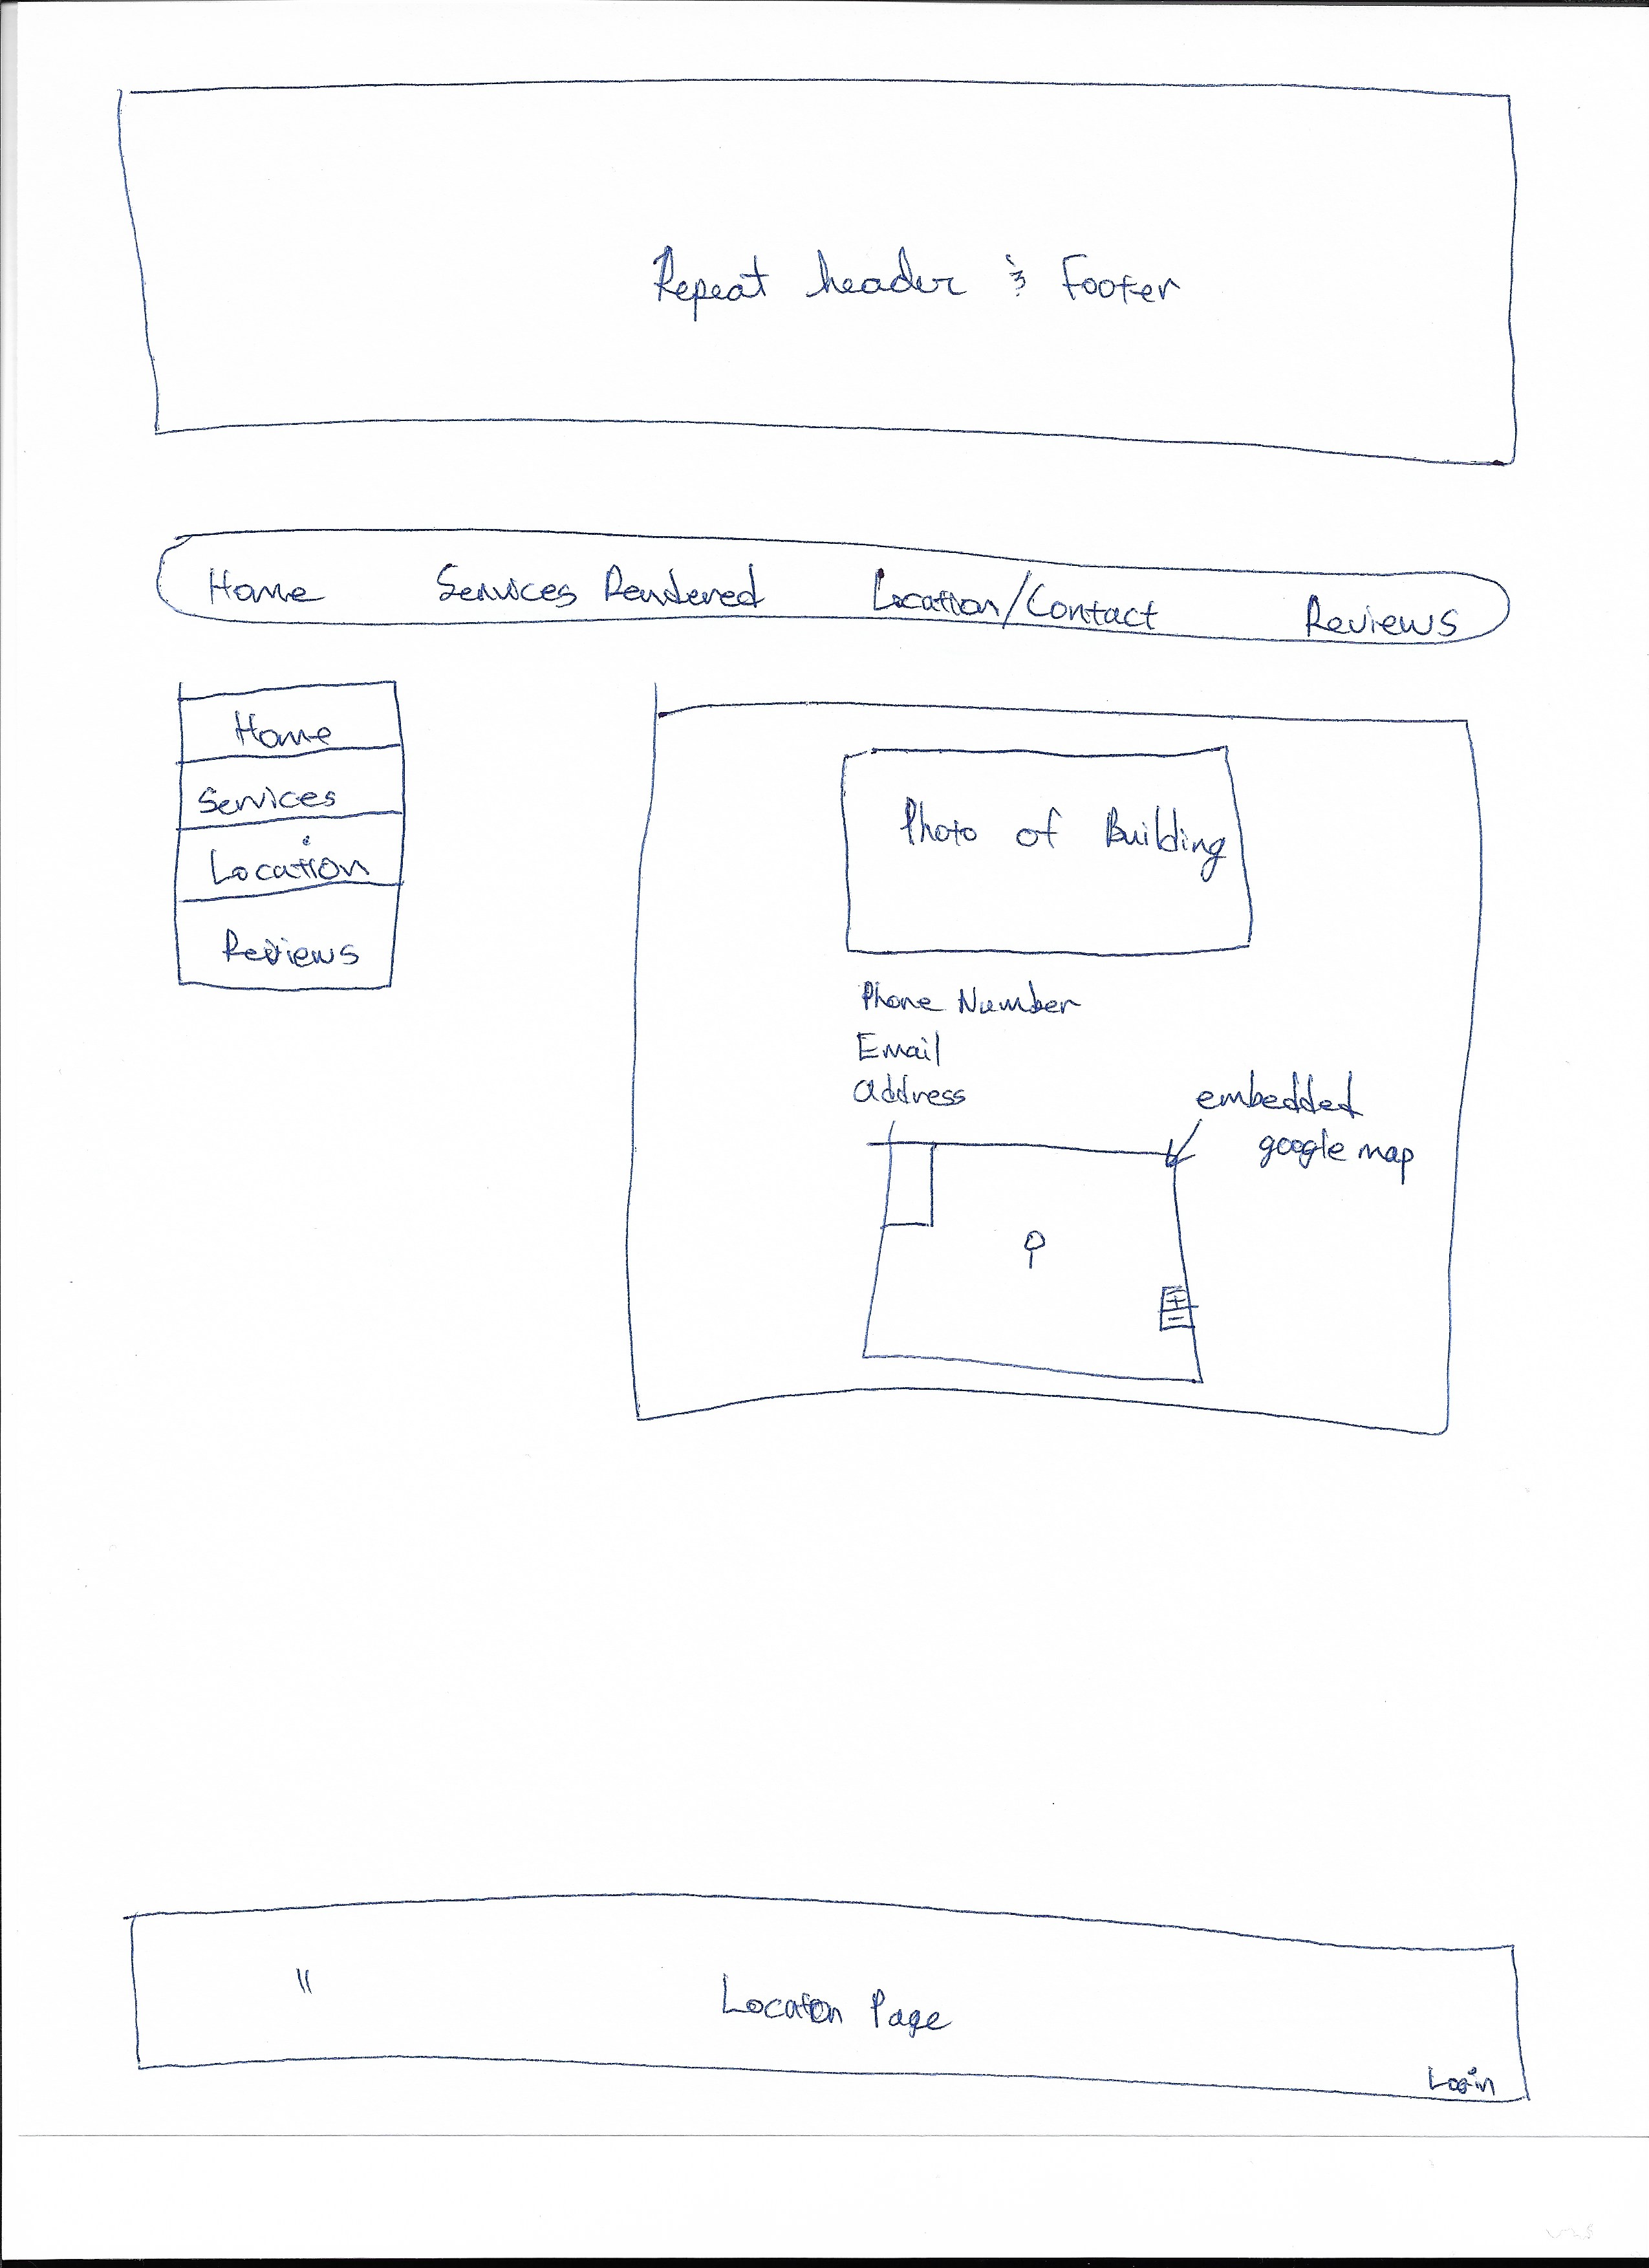 Repeat header & Footer
Home Services Rendered Location/Contact Reviews
Home
Services
Location
Reviews
Photo of Building
Phone Number
Email
address
embedded
google map
+
-
" Location Page
Login